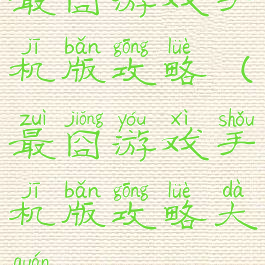 最囧游戏手
jī bǎn gōng lüè
机版攻略（
zuì jiǒng yóu xì shǒu
最囧游戏手
jī bǎn gōng lüè dà
机版攻略大
quán